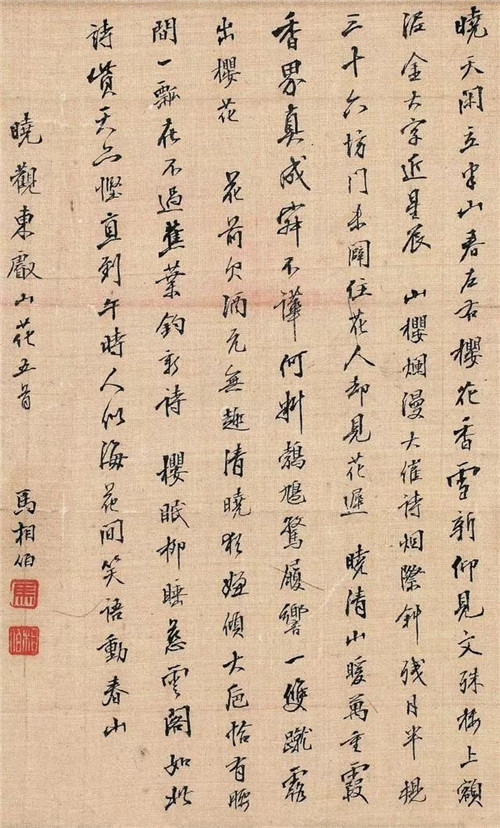 曉天閑立半山春左右櫻花香雪新仰見文殊樓上額
泥金大字近星辰 山櫻爛漫大催詩烟際斜殘月半規
三十六坊門未住花人却見花遲 曉清山暖萬重霞
香界真成寂不譁何料鵓鳩驚履響一雙蹴露
出櫻花 花前欠酒元無趣清曉猶嫌傾大卮恰有腰
間一瓢在不過蕉葉釣新詩 櫻眠柳睡慈雲閣如此
詩天亦慳直到午時人似海花間笑語動春山
曉觀東山花五首 馬相伯
馬
相伯